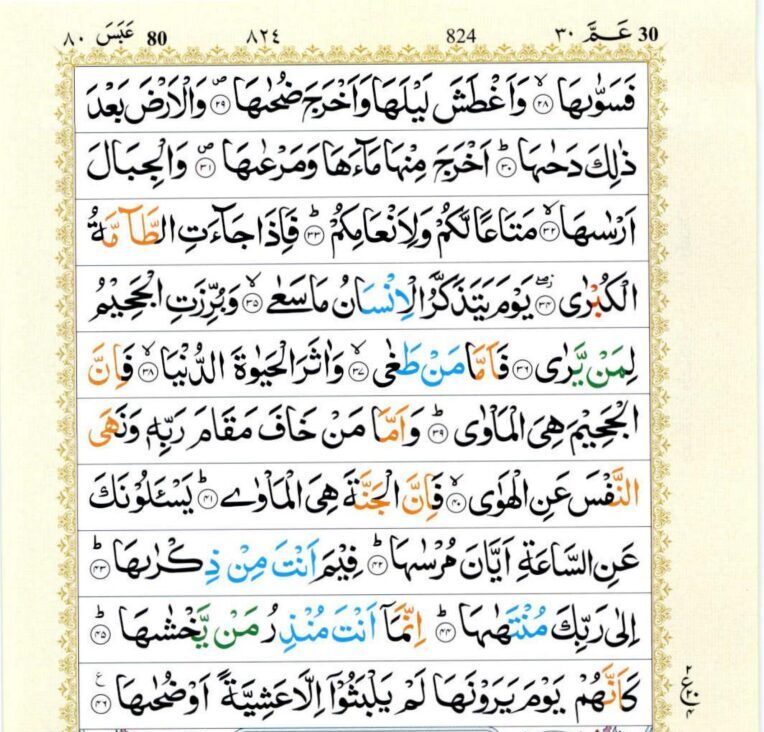 30 عَـمَّ ٣٠ 824 ٨٢٤ 80 عَبَسَ ٨٠
فَسَوّٰىهَا ۙ‏﴿۲۸﴾ وَاَغْطَشَ لَيْلَهَا وَاَخْرَجَ ضُحٰىهَا ۪‏﴿۲۹﴾ وَالْاَرْضَ بَعْدَ
ذٰلِكَ دَحٰىهَا ؕ‏﴿۳۰﴾ اَخْرَجَ مِنْهَا مَآءَهَا وَمَرْعٰىهَا ۪‏﴿۳۱﴾ وَالْجِبَالَ
اَرْسٰىهَا ۙ‏﴿۳۲﴾ مَتَاعًا لَّكُمْ وَلِاَنْعَامِكُمْ ؕ‏﴿۳۳﴾ فَاِذَا جَآءَتِ الطَّآمَّةُ
الْكُبْرٰى ۖ‏﴿۳۴﴾ يَوْمَ يَتَذَكَّرُ الْاِنْسَانُ مَا سَعٰى ۙ‏﴿۳۵﴾ وَبُرِّزَتِ الْجَحِيْمُ
لِمَنْ يَّرٰى ‏﴿۳۶﴾ فَاَمَّا مَنْ طَغٰى ۙ‏﴿۳۷﴾ وَاٰثَرَ الْحَيٰوةَ الدُّنْيَا ۙ‏﴿۳۸﴾ فَاِنَّ
الْجَحِيْمَ هِىَ الْمَاْوٰى ؕ‏﴿۳۹﴾ وَاَمَّا مَنْ خَافَ مَقَامَ رَبِّهٖ وَنَهَى
النَّفْسَ عَنِ الْهَوٰى ۙ‏﴿۴۰﴾ فَاِنَّ الْجَنَّةَ هِىَ الْمَاْوٰى ؕ‏﴿۴۱﴾ يَسْـَٔلُوْنَكَ
عَنِ السَّاعَةِ اَيَّانَ مُرْسٰىهَا ؕ‏﴿۴۲﴾ فِيْمَ اَنْتَ مِنْ ذِكْرٰىهَا ؕ‏﴿۴۳﴾
اِلٰى رَبِّكَ مُنْتَهٰىهَا ؕ‏﴿۴۴﴾ اِنَّمَاۤ اَنْتَ مُنْذِرُ مَنْ يَّخْشٰىهَا ؕ‏﴿۴۵﴾
كَاَنَّهُمْ يَوْمَ يَرَوْنَهَا لَمْ يَلْبَثُوْۤا اِلَّا عَشِيَّةً اَوْ ضُحٰىهَا ‏﴿۴۶﴾
۲ ع ۲۰ ۴